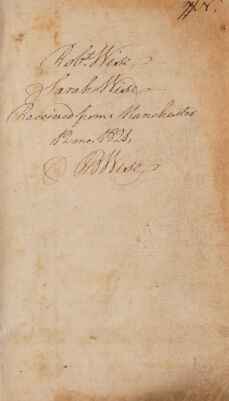 Robt. Wise
Sarah Wise
Received from Manchester
12 mo. 1821,
Wise